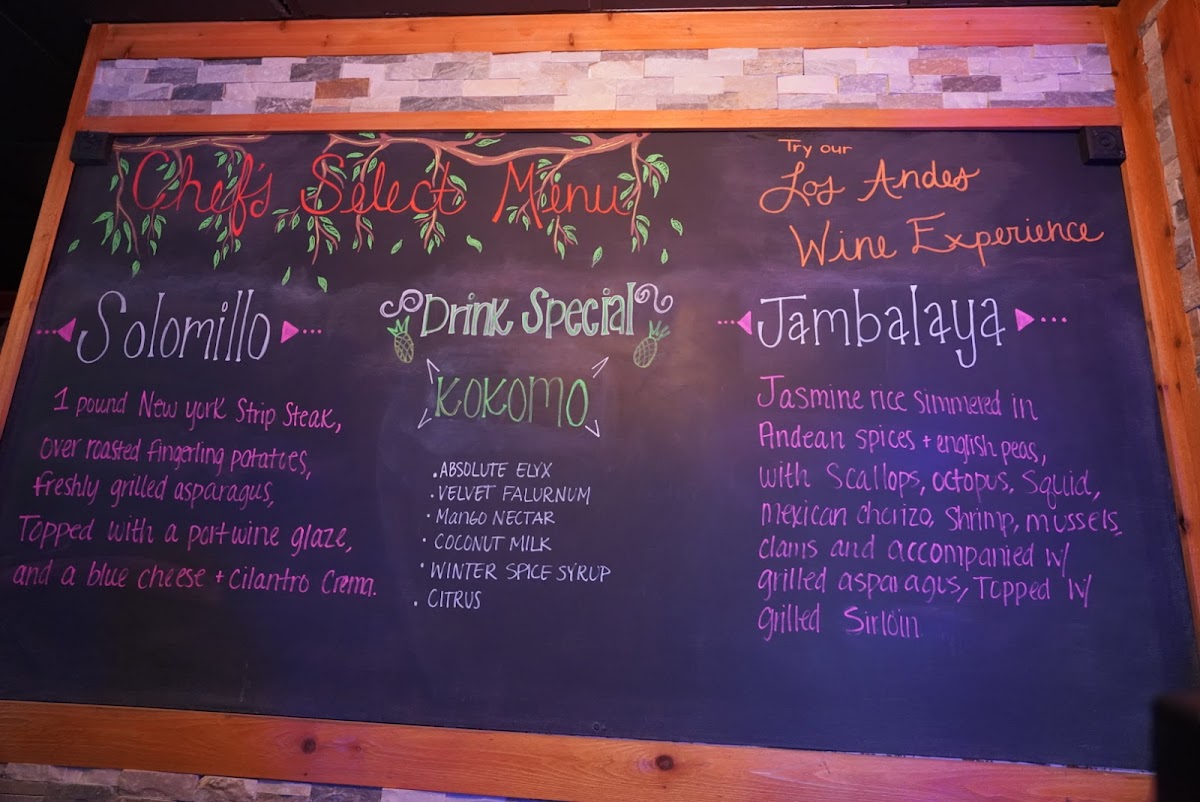 Chef's Select Menu
Try our
Los Andes
Wine Experience
Solomillo
1 pound New york Strip Steak,
over roasted fingerling potatoes,
freshly grilled asparagus,
Topped with a port wine glaze,
and a blue cheese + Cilantro Crema.
Drink Special
KOKOMO
• ABSOLUTE ELYX
• VELVET FALURNUM
• Mango NECTAR
• COCONUT MILK
• WINTER SPICE SYRUP
• CITRUS
Jambalaya
Jasmine rice simmered in
Andean spices + english peas,
with Scallops, octopus, Squid,
mexican chorizo, Shrimp, mussels,
clams and accompanied w/
grilled asparagus, Topped w/
grilled Sirloin